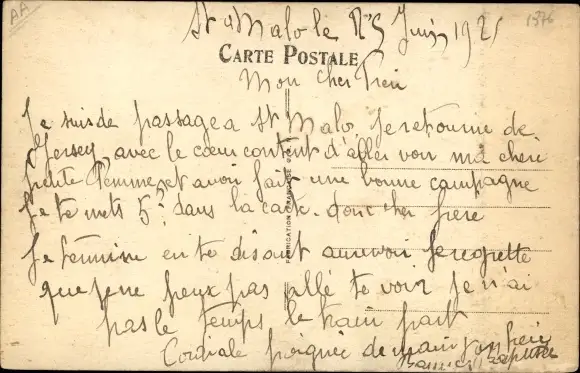 AA
1376
St Malo le 25 Juin 1921
CARTE POSTALE
Mon cher Frere
Je suis de passage a St Malo. Je retourne de
Jersey, avec le cœur content d'aller voir ma cheri
petite femme, et avoir fait une bonne campagne
Je te mets 5f dans la carte. donc cher frere
Je termine en te disant aurevoir Je regrette
que je ne peux pas allé te voir je n'ai
pas le temps le train part
Cordiale poignée de main ton frere
FABRICATION FRANÇAISE